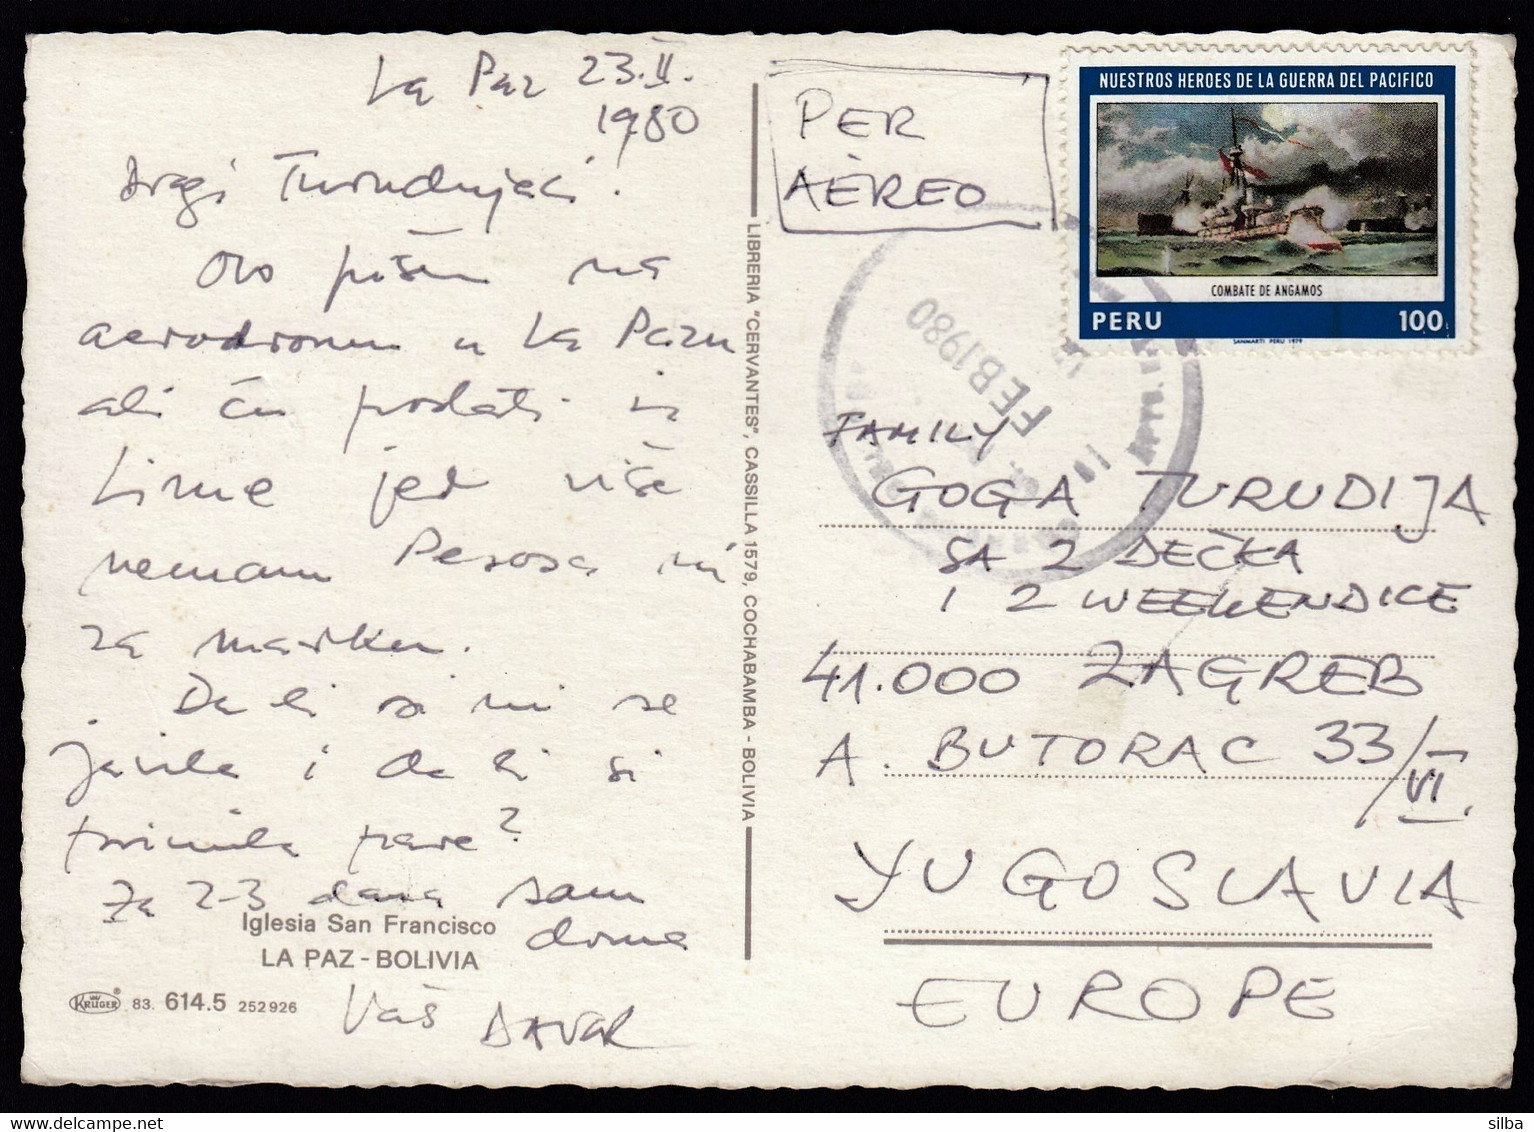 La Paz 23.II.
1980
Dragi Turudijaci!
Ovo pišem na
aerodromu u La Pazu
ali ću poslati iz
Lime jer više
nemam Pesosa ni
za marku.
Da li si mi se
javila i da li si
primila pare?
Za 2-3 dana sam
doma
Vaš DAVOR
Iglesia San Francisco
LA PAZ - BOLIVIA
KRÜGER ® 83. 614.5 252926
LIBRERIA "CERVANTES", CASSILLA 1579, COCHABAMBA - BOLIVIA
PER
AÉREO
NUESTROS HEROES DE LA GUERRA DEL PACIFICO
COMBATE DE ANGAMOS
PERU 100
SANMARTI PERU 1979
FEB 1980
FAMILY
GOGA TURUDIJA
SA 2 DEČKA
I 2 WEEKENDICE
41.000 ZAGREB
A. BUTORAC 33/VI.
YUGOSLAVIA
EUROPE
silba